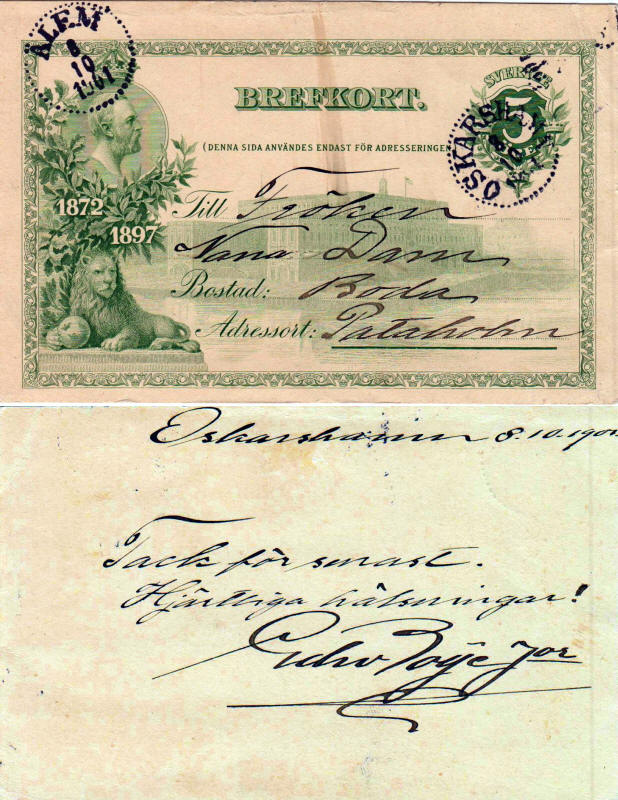 ÅLEM
8
10
1901
BREFKORT.
SVERIGE
5
(DENNA SIDA ANVÄNDES ENDAST FÖR ADRESSERINGEN
OSKARSHAMN
8
10
1872
1897
Till Fröken
Nana Dam
Bostad: Boda
Adressort: Pataholm
Oskarshamn 8.10.1901
Tack för senast.
Hjärtliga hälsningar!
Jor